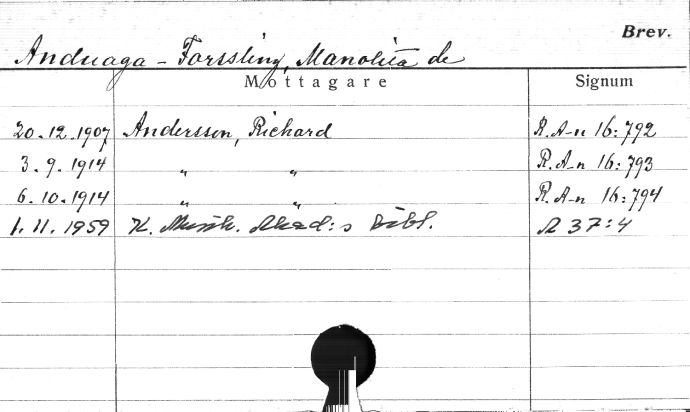 Brev.
Anduaga - Forssling, Manolita de
Mottagare Signum
20.12.1907 Andersson, Richard R.A-n 16:792
3.9.1914 " " R.A-n 16:793
6.10.1914 " " R.A-n 16:794
1.11.1959 K. Musik. Akad:s Bibl. A 37:4